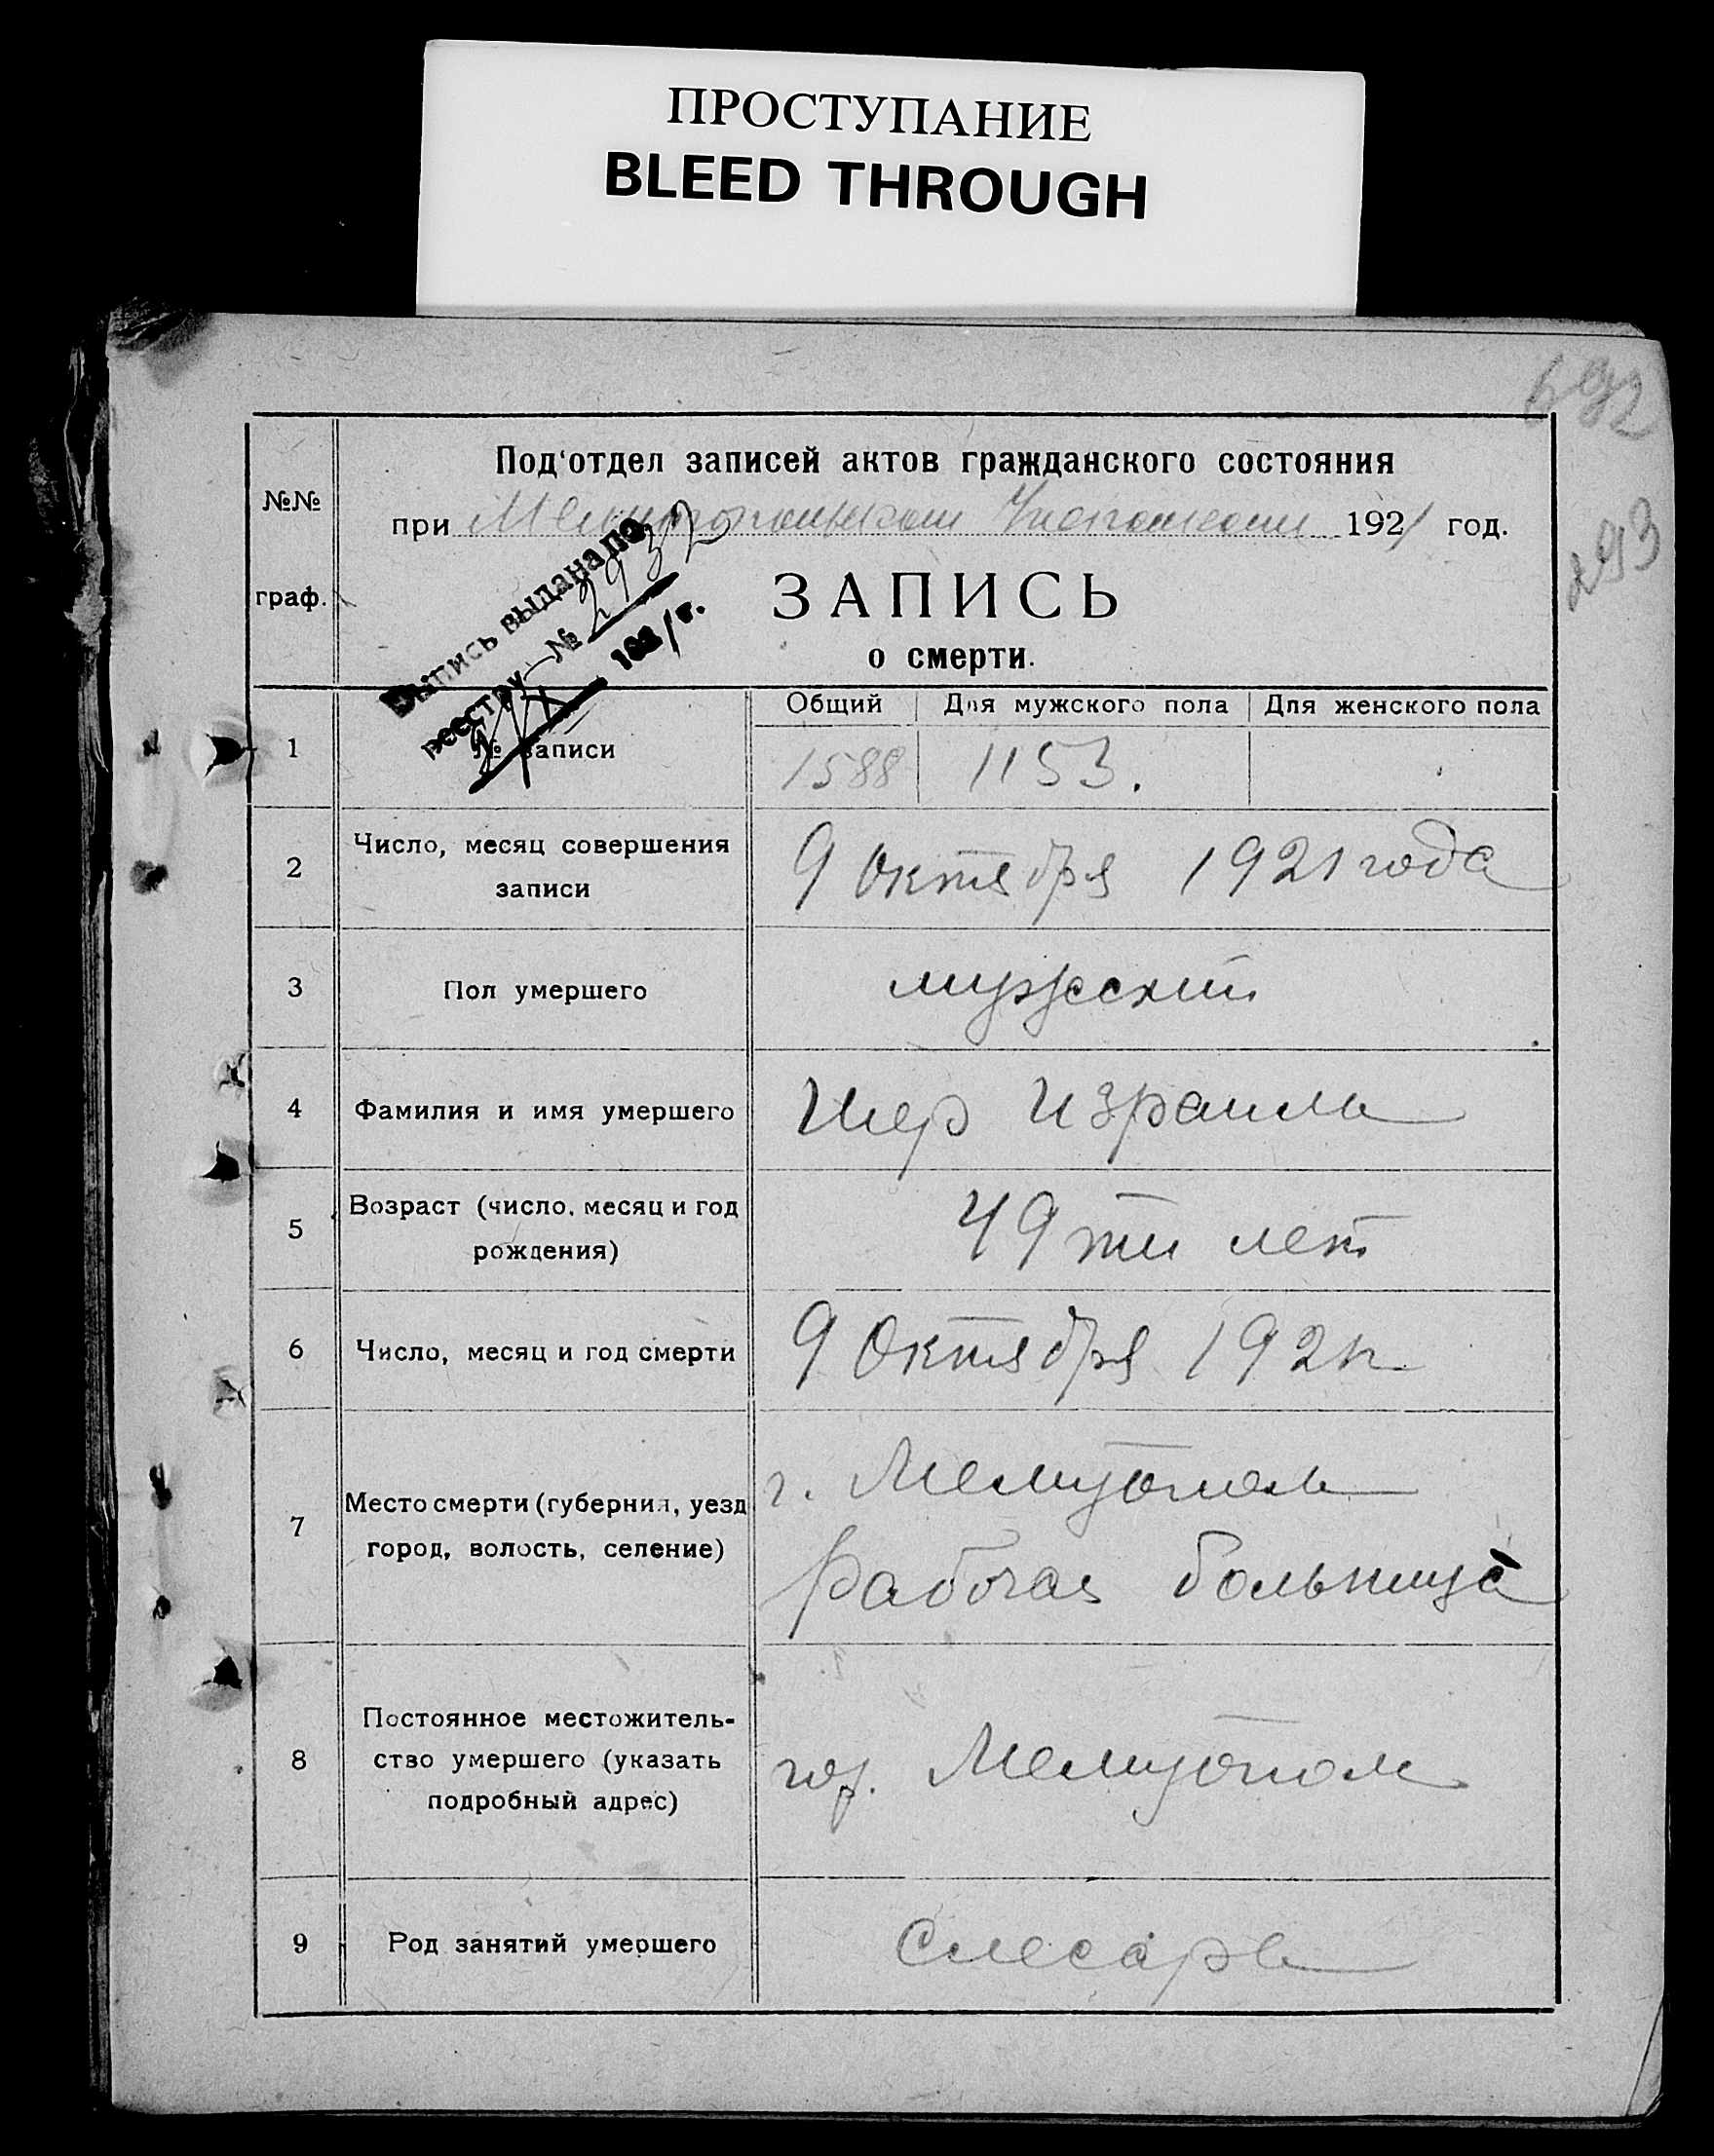 ПРОСТУПАНИЕ
BLEED THROUGH
692
293
№№
граф.
Под'отдел записей актов гражданского состояния
при Мелитопольском Исполкоме 1921 год.
ЗАПИСЬ
о смерти.
Выпись выдана по
реестру № 2932
1921 г.
Общий Для мужского пола Для женского пола
1 № записи 1588 1153.
2 Число, месяц совершения
записи
9 Октября 1921 года
3 Пол умершего мужеский
4 Фамилия и имя умершего Шер Израиль
5 Возраст (число, месяц и год
рождения)
49 ти лет
6 Число, месяц и год смерти 9 Октября 1921 г.
7 Место смерти (губерния, уезд
город, волость, селение)
г. Мелитополь
Рабочая больница
8 Постоянное местожитель-
ство умершего (указать
подробный адрес)
гор. Мелитополь
9 Род занятий умершего Слесарь